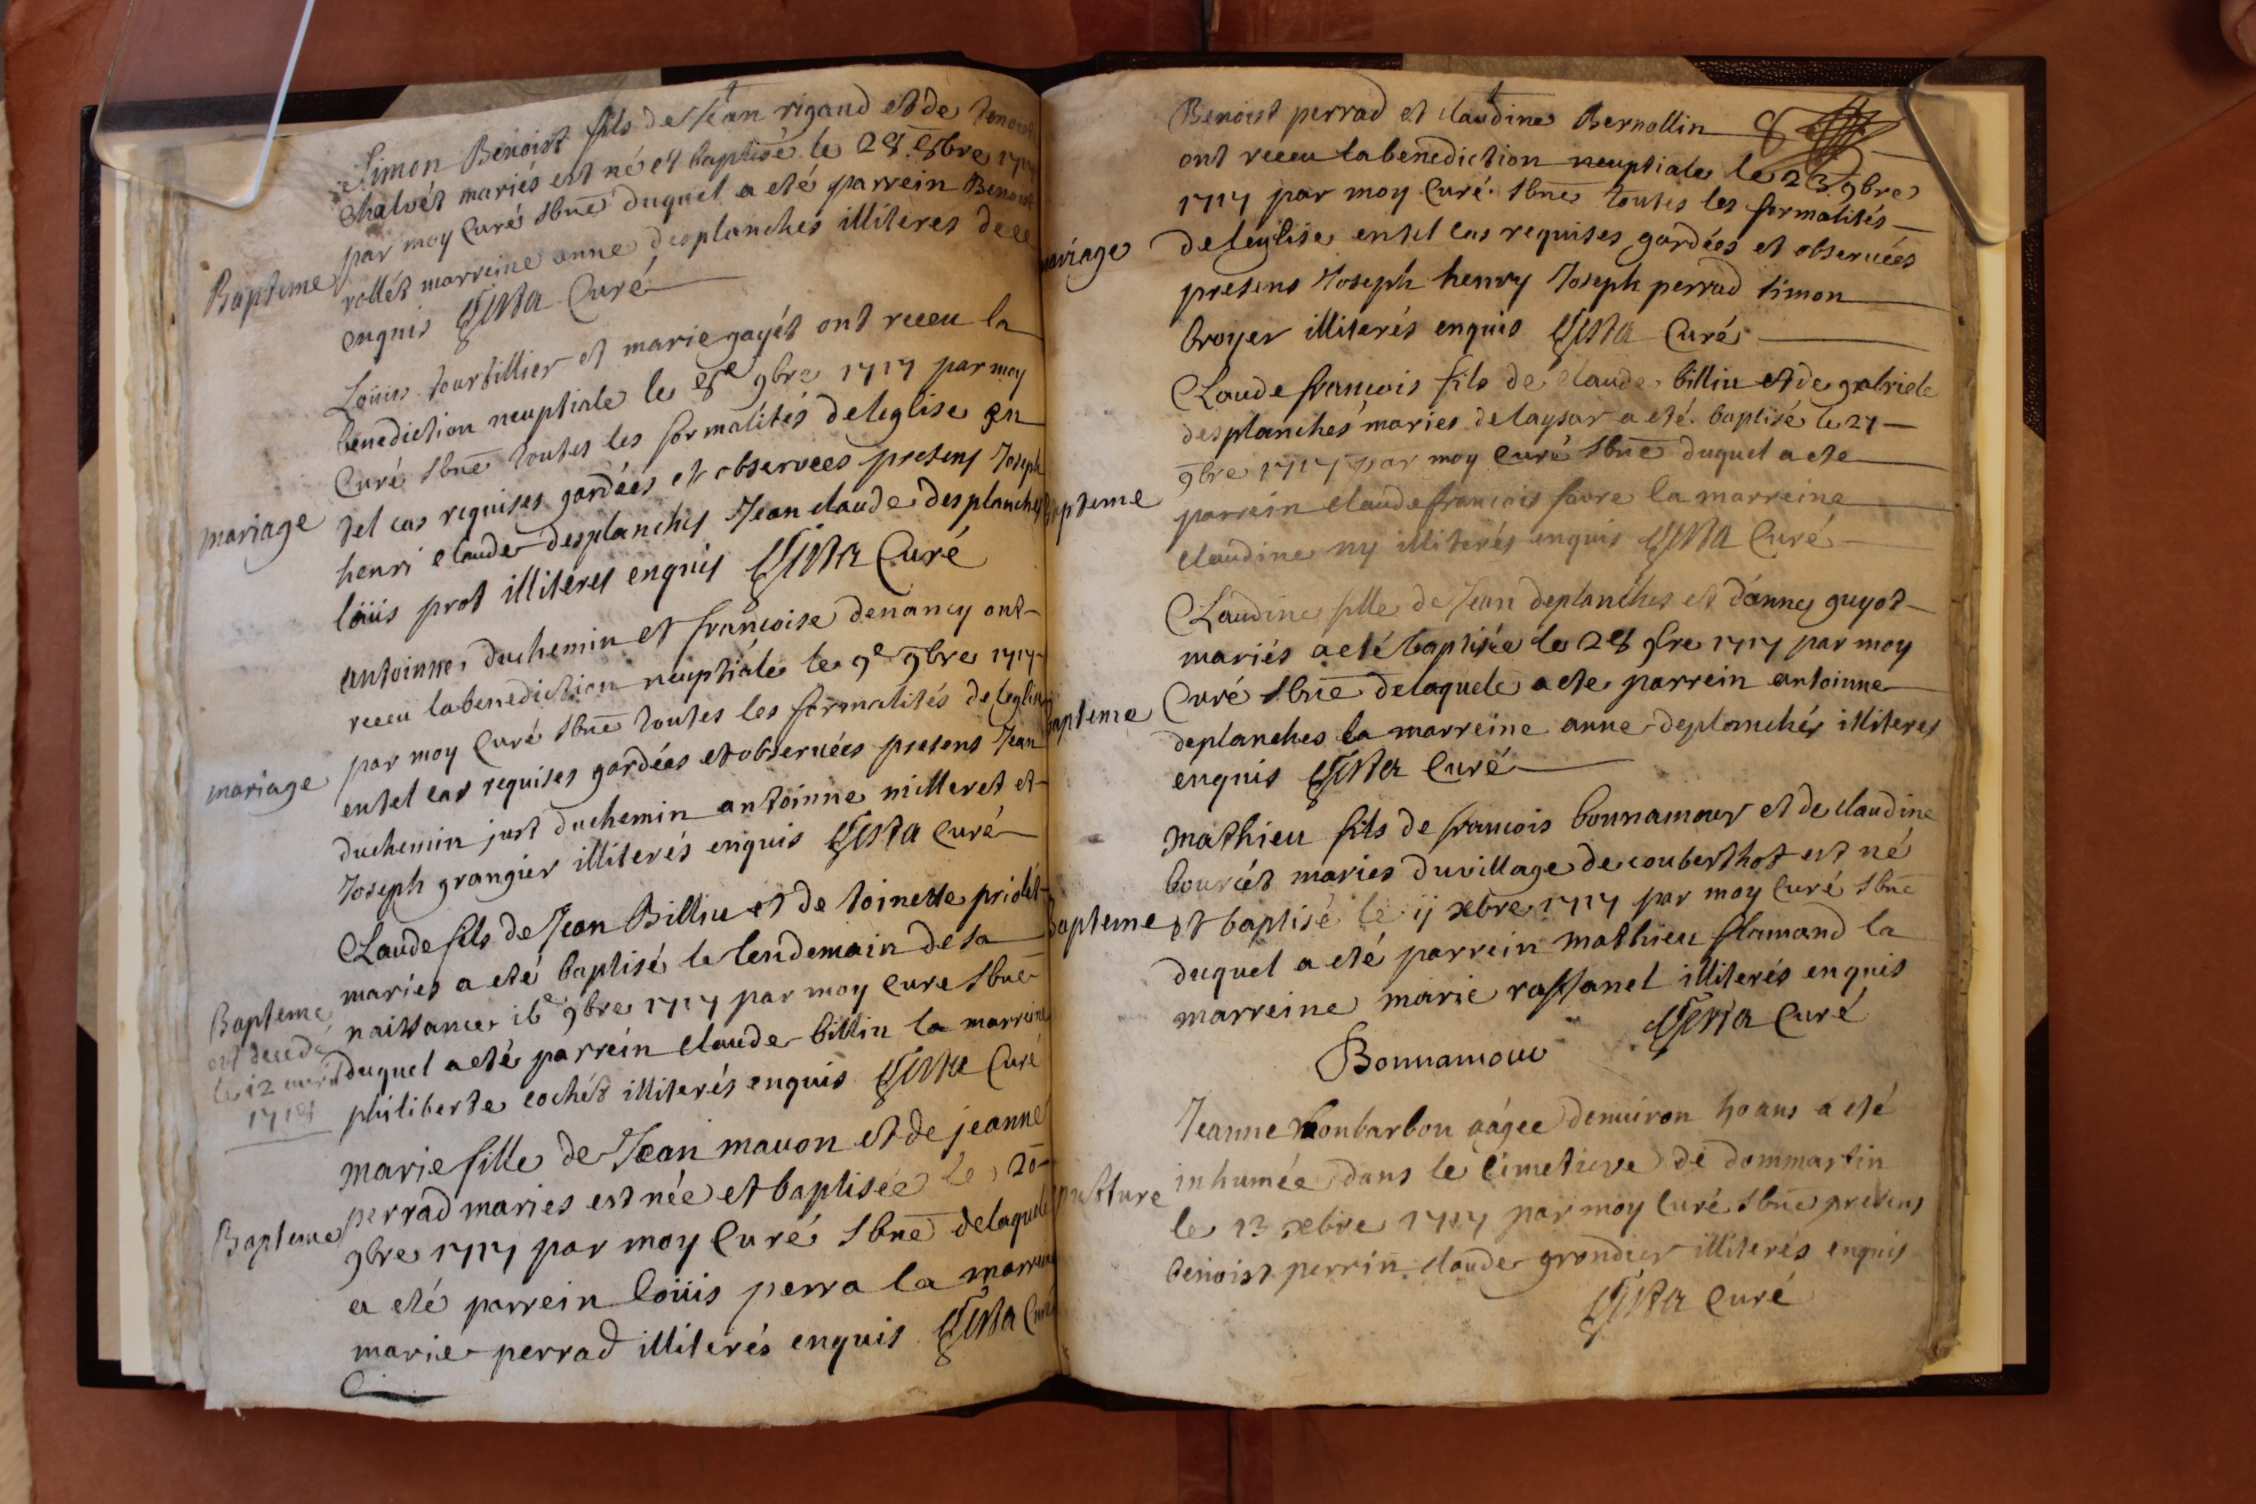 Simon Benoist fils de Jean rigaud et de benoist
chalvét mariés est né et baptisé le 28 8bre 1717
par moy Curé sbne duquel a eté parrein Benoist
Bapteme
rollét marreine anne desplanches illiteres de ce
enquis Curé
Loüis tourtillier et marie gayét ont receu la
benediction neuptiale le 8e 9bre 1717 par moy
Curé sbne toutes les formalités deleglise en
tel cas requises gardéés et observees presens Joseph
mariage
henri claude desplanches Jean claude desplanches
loüis prot illiteres enquis Curé
antoinne duchemin et francoise denancy ont
receu labenediction neuptiale le 9e 9bre 1717
par moy Curé sbne toutes les formalités de leglise
mariage
entel cas requises gardéés et observéés presens Jean
duchemin just duchemin antoinne milleret et
Joseph grangier illiterés enquis Curé
Claude fils de Jean Billiu et de toinette priolet
maries a eté baptisé le lendemain de sa
Bapteme
naissance 16e 9bre 1717 par moy Cure sbne
est decedé
le 12 avril
duquel a eté parrein claude billiu la marreine
1718
philiberte cochét illiterés enquis Curé
Marie fille de Jean mavon et de jeanne
perrad maries est née et baptisée le 20
Bapteme
9bre 1717 par moy Curé sbne delaquele
a eté parrein loüis perra la marreine
marie perrad illiterés enquis Curé
Benoist perrad et claudine Bernollin
ont receu labenediction neuptiale le 23 9bre
1717 par moy Curé sbne toutes les formalités
mariage
deleglise entel cas requises gardéés et observéés
presens Joseph henry Joseph perrad simon
broyer illiterés enquis Curé
Claude francois fils de claude billiu et de gabriele
desplanchés maries delaysar a eté baptisé le 27
9bre 1717 par moy Curé sbne duquel a ete
bapteme
parrein claude francois favre la marreine
claudine ny illiterés enquis Curé
Claudine fille de Jean deplanches et danne guyot
mariés a eté baptisée le 28 9bre 1717 par moy
Curé sbne delaquele a ete parrein antoinne
bapteme
deplanches la marreine anne deplanchés illiteres
enquis Curé
Mathieu fils de francois bonnamour et de claudine
bourcét maries du village de couberthot est né
Bapteme
et baptisé le ij xbre 1717 par moy Curé sbne
duquel a eté parrein mathieu flamand la
marreine marie raffanel illiterés enquis
Curé
Bonnamour
Jeanne monbarbon aágee denuiron 40 ans a eté
inhumée dans le Cimetiere de dommartin
sepulture
le 13 xbre 1717 par moy Curé sbne presens
benoist perrin claude grondier illiterés enquis
Curé